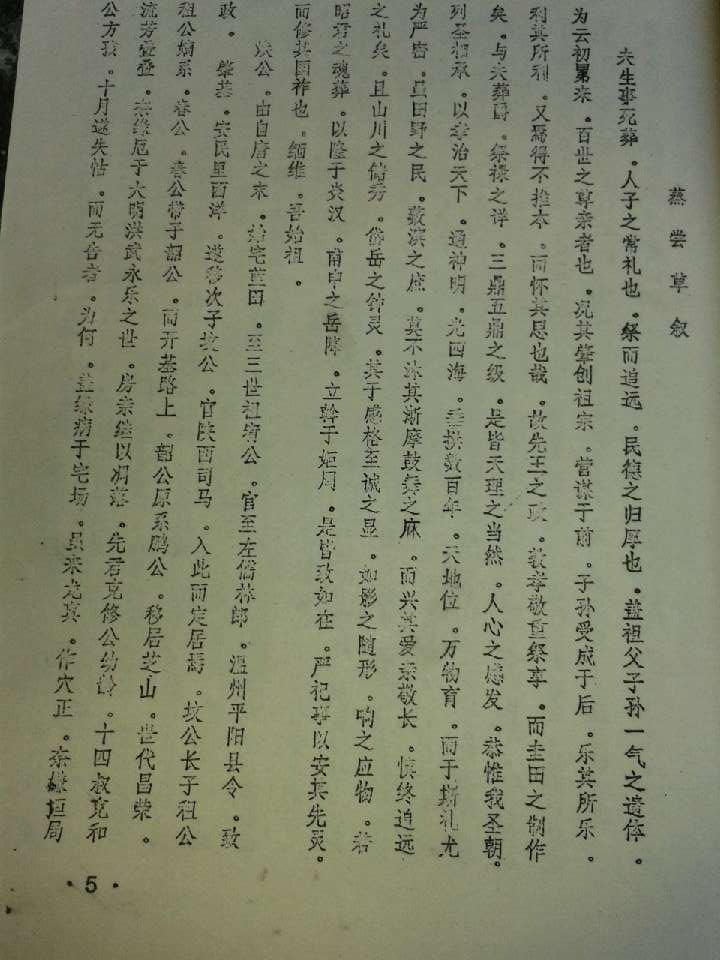 蒸尝草叙
夫生事死葬。人子之常礼也。祭而追远。民德之归厚也。盖祖父子孙一气之遗体。
为云初累来。百世之尊亲者也。况其肇创祖宗。营谋于前。子孙受成于后。乐其所乐。
利其所利。又焉得不推本。而怀其恩也哉。故先王之政。教孝敬重祭享。而圭田之制作
矣。与夫葬爵。祭禄之详。三鼎五鼎之级。是皆天理之当然。人心之感发。恭惟我圣朝。
列圣相承。以孝治天下。通神明。光四海。垂拱数百年。天地位。万物育。而于斯礼尤
为严密。虽田野之民。敎淇之庶。莫不沐其渐摩鼓舞之麻。而兴其爱亲敬长。慎终追远
之礼矣。且山川之储秀。岱岳之钟灵。其于感格至诚之显。如影之随形。响之应物。若
昭君之魂葬。以隆于炎汉。甫申之岳降。立幹于姬周。是皆敬如在。严祀事以安其先灵。
而修其国祚也。缅维。吾始祖。
公。由自唐之末。宅田。至三世祖公。官至左儒林郎。温州平阳县令。致
政。肇基。安民里西洋。遂移次子坟公。官陕西司马。入此而定居焉。坟公长子租公
租公嫡系。春公。春公带于韶公。而开基路上。韶公原系鹏公。移居芝山。世代昌荣。
流芳叠叠。奈缘厄于大明洪武永乐之世。房亲继以凋落。先君克修公幼龄。十四叔克和
公方孩。十月遂失怙。而无告者。为何。盖缘病于宅场。虽来龙真。作穴正。奈嫌垣局
·5·